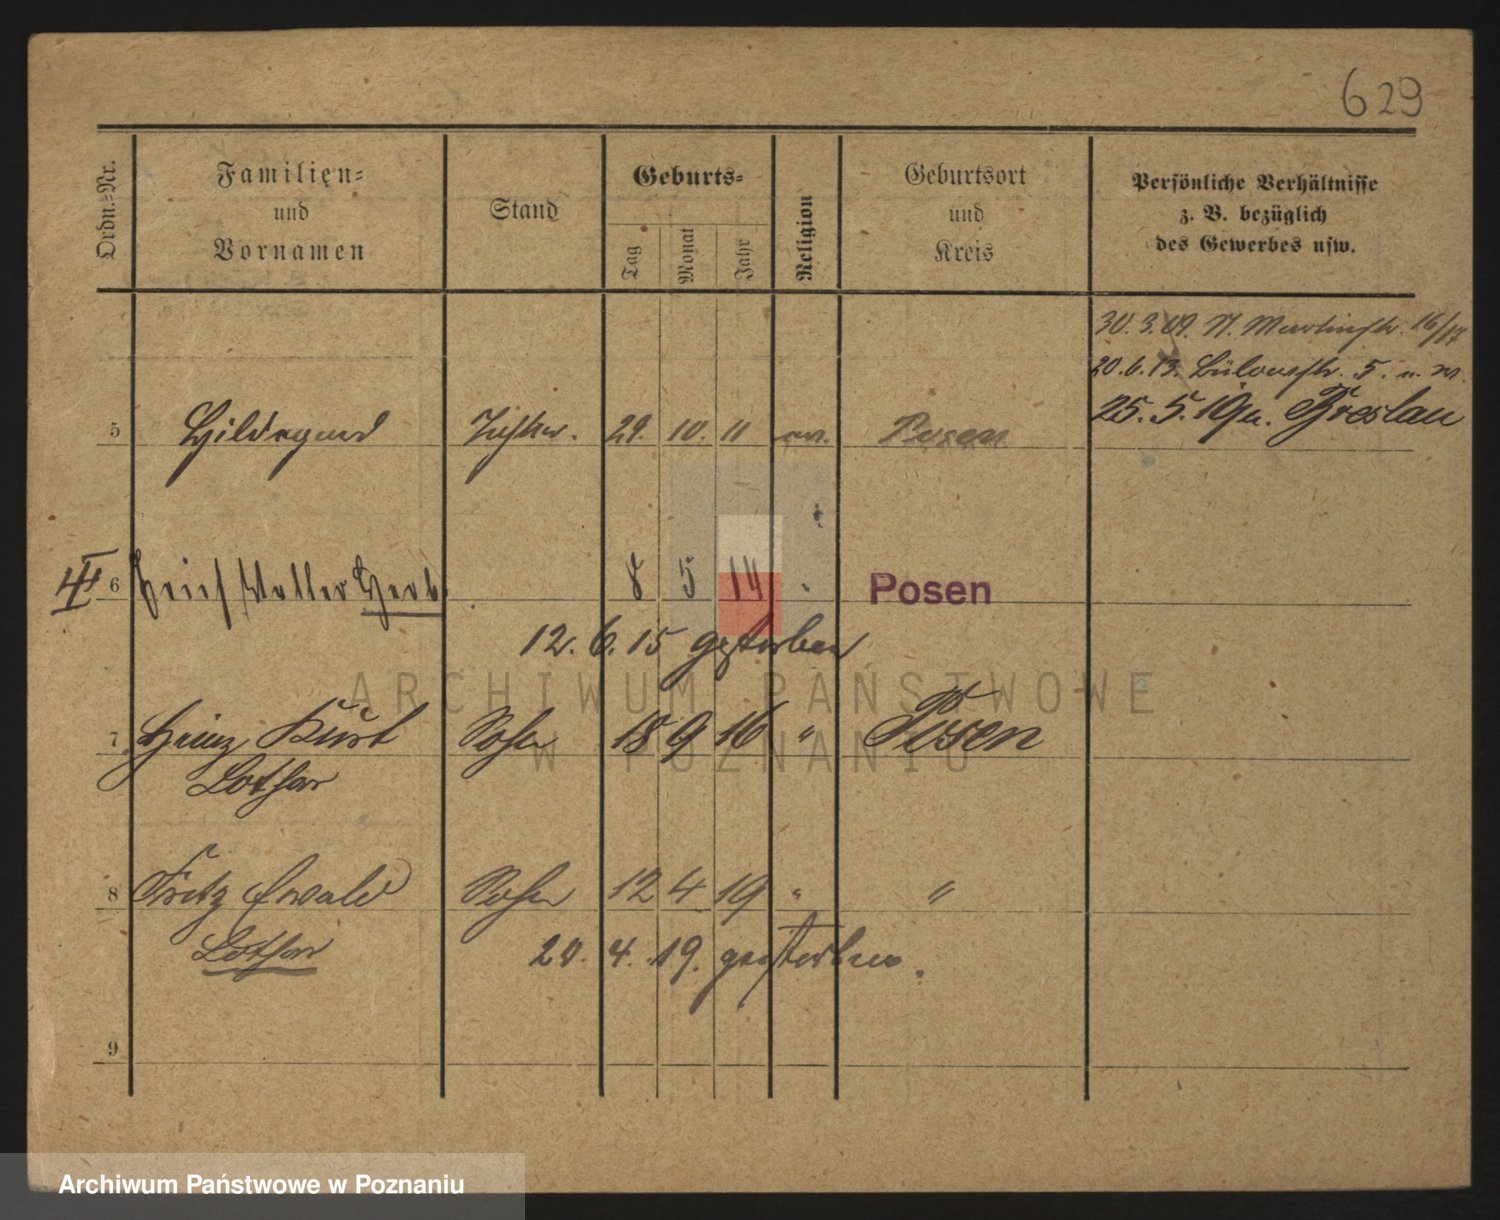 629
Ordn.-Nr.
Familien-
und
Vornamen
Stand
Geburts-
Tag
Monat
Jahr
Religion
Geburtsort
und
Kreis
Persönliche Verhältnisse
z. B. bezüglich
des Gewerbes usw.
30. 3. 09. Martinstr. 16/17
20. 6. 13. Bülowstr. 5.
25. 5. 19 n. Breslau
5 Hildegard Tochter. 29. 10. 11 ev. Posen
6 Erich Walter Herb. 8 5 14 " Posen
12. 6. 15 gestorben
7 Heinz Kurt Sohn 18 9 16 " Posen
Lothar
8 Fritz Ewald Sohn 12 4 19 " "
Lothar
20. 4. 19. gestorben.
9
ARCHIWUM PAŃSTWOWE
W POZNANIU
Archiwum Państwowe w Poznaniu